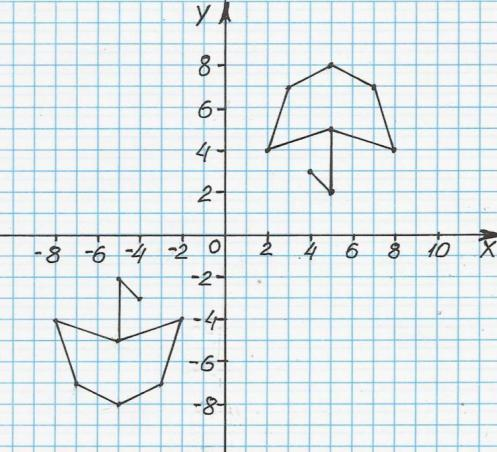 y
8
6
4
2
-8 -6 -4 -2 0 2 4 6 8 10 x
-2
-4
-6
-8